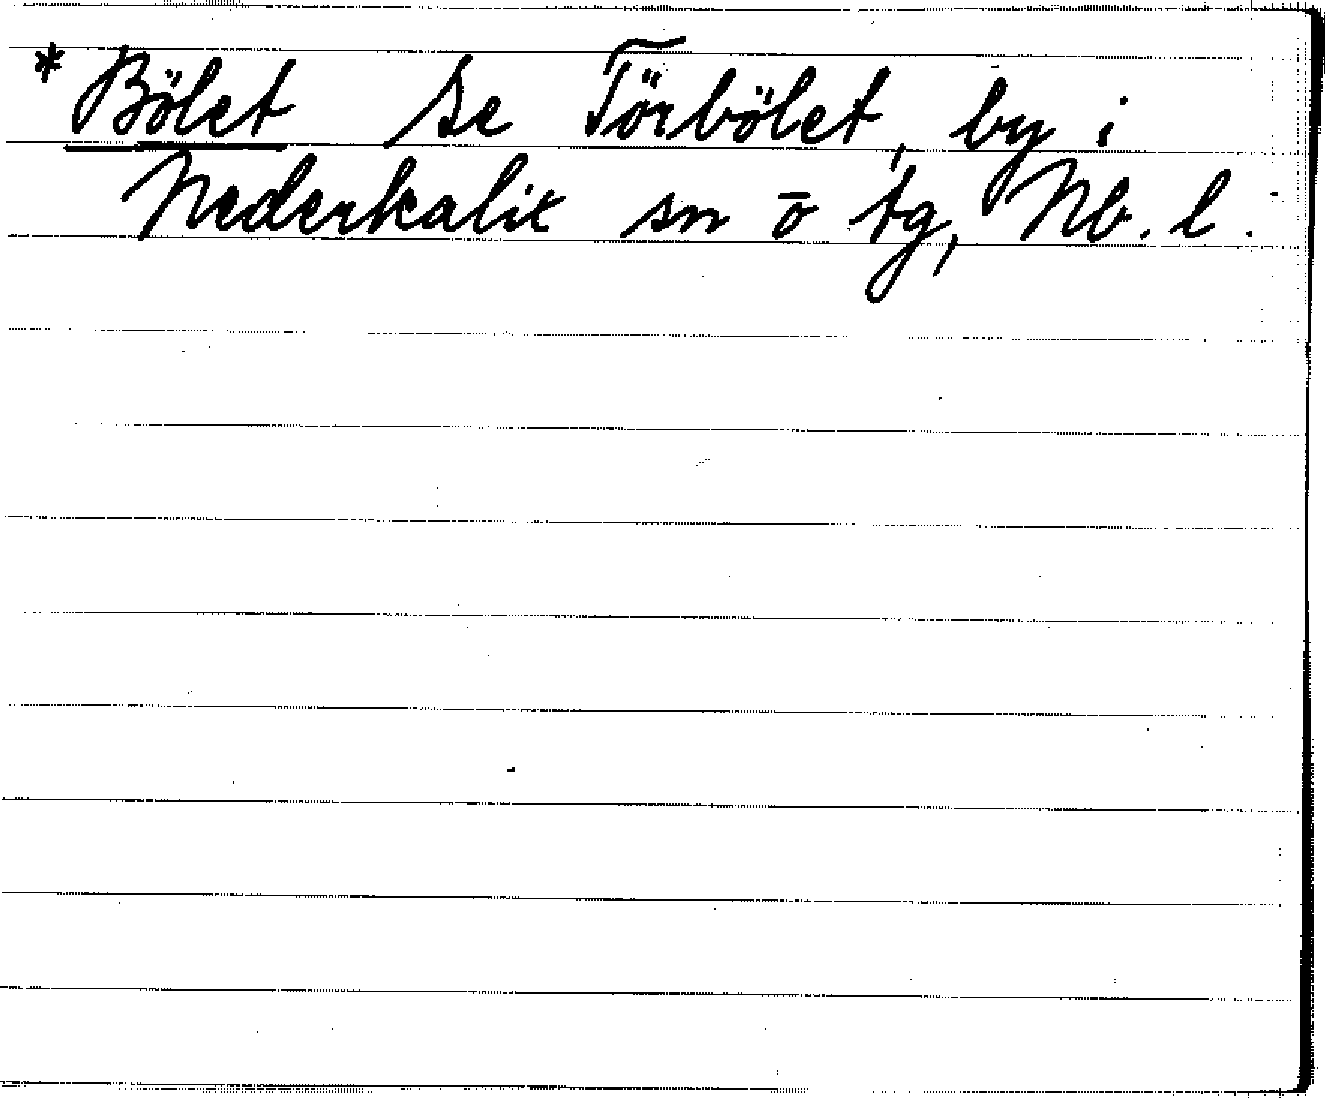 * Bölet se Törbölet, by i
Nederkalix sn o tg, Nb. l.